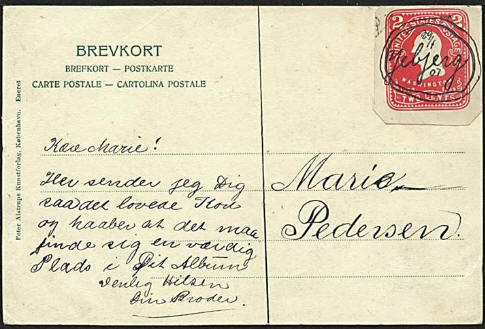 BREVKORT
BREFKORT — POSTKARTE
CARTE POSTALE — CARTOLINA POSTALE
Peter Alstrups Kunstforlag, København. Eneret
Kære Marie!
Her sender jeg Dig
saa det lovede Kort
og haaber at det maa
finde sig en værdig
Plads i Dit Album
Venlig Hilsen
Din Broder.
Marie
Pedersen.
2 2
UNITED STATES POSTAGE
WASHINGTON
TWO CENTS
07